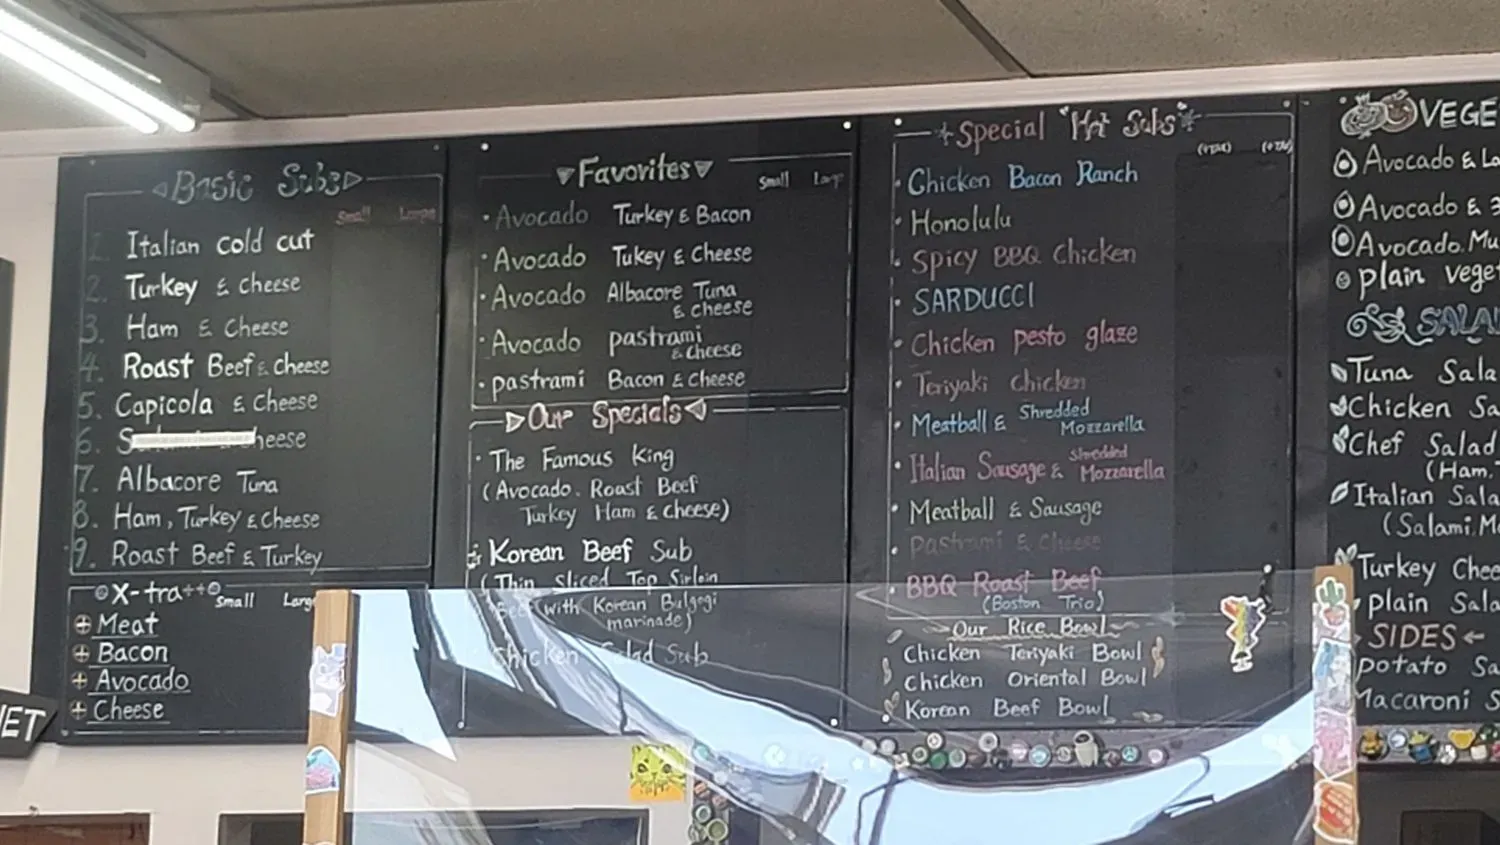 Basic Subs
Small Large
1. Italian cold cut
2. Turkey & cheese
3. Ham & Cheese
4. Roast Beef & Cheese
5. Capicola & Cheese
6. S heese
7. Albacore Tuna
8. Ham, Turkey & Cheese
9. Roast Beef & Turkey
X-tra++
Small Larg
+ Meat
+ Bacon
+ Avocado
+ Cheese
ET
Favorites
Small Large
• Avocado Turkey & Bacon
• Avocado Tukey & Cheese
• Avocado Albacore Tuna
& Cheese
• Avocado pastrami
& Cheese
• pastrami Bacon & Cheese
Our Specials
• The Famous King
(Avocado. Roast Beef
Turkey Ham & cheese)
Korean Beef Sub
(Thin Sliced Top Sirloin
Beef with Korean Bulgogi
marinade)
Chicken Salad Sub
Special "Hot Subs"
(+TAX) (+TAX)
• Chicken Bacon Ranch
• Honolulu
• Spicy BBQ Chicken
• SARDUCCI
• Chicken pesto glaze
• Teriyaki Chicken
• Meatball & Shredded
Mozzarella
• Italian Sausage & Shredded
Mozzarella
• Meatball & Sausage
• Pastrami & Cheese
• BBQ Roast Beef
(Boston Trio)
Our Rice Bowl
Chicken Teriyaki Bowl
Chicken Oriental Bowl
Korean Beef Bowl
VEGE
Avocado & L
Avocado & 3
Avocado. Mu
plain veget
SALA
Tuna Sala
Chicken Sa
Chef Salad
(Ham.
Italian Sala
(Salami. M
Turkey Chee
plain Sala
SIDES
potato Sa
Macaroni S